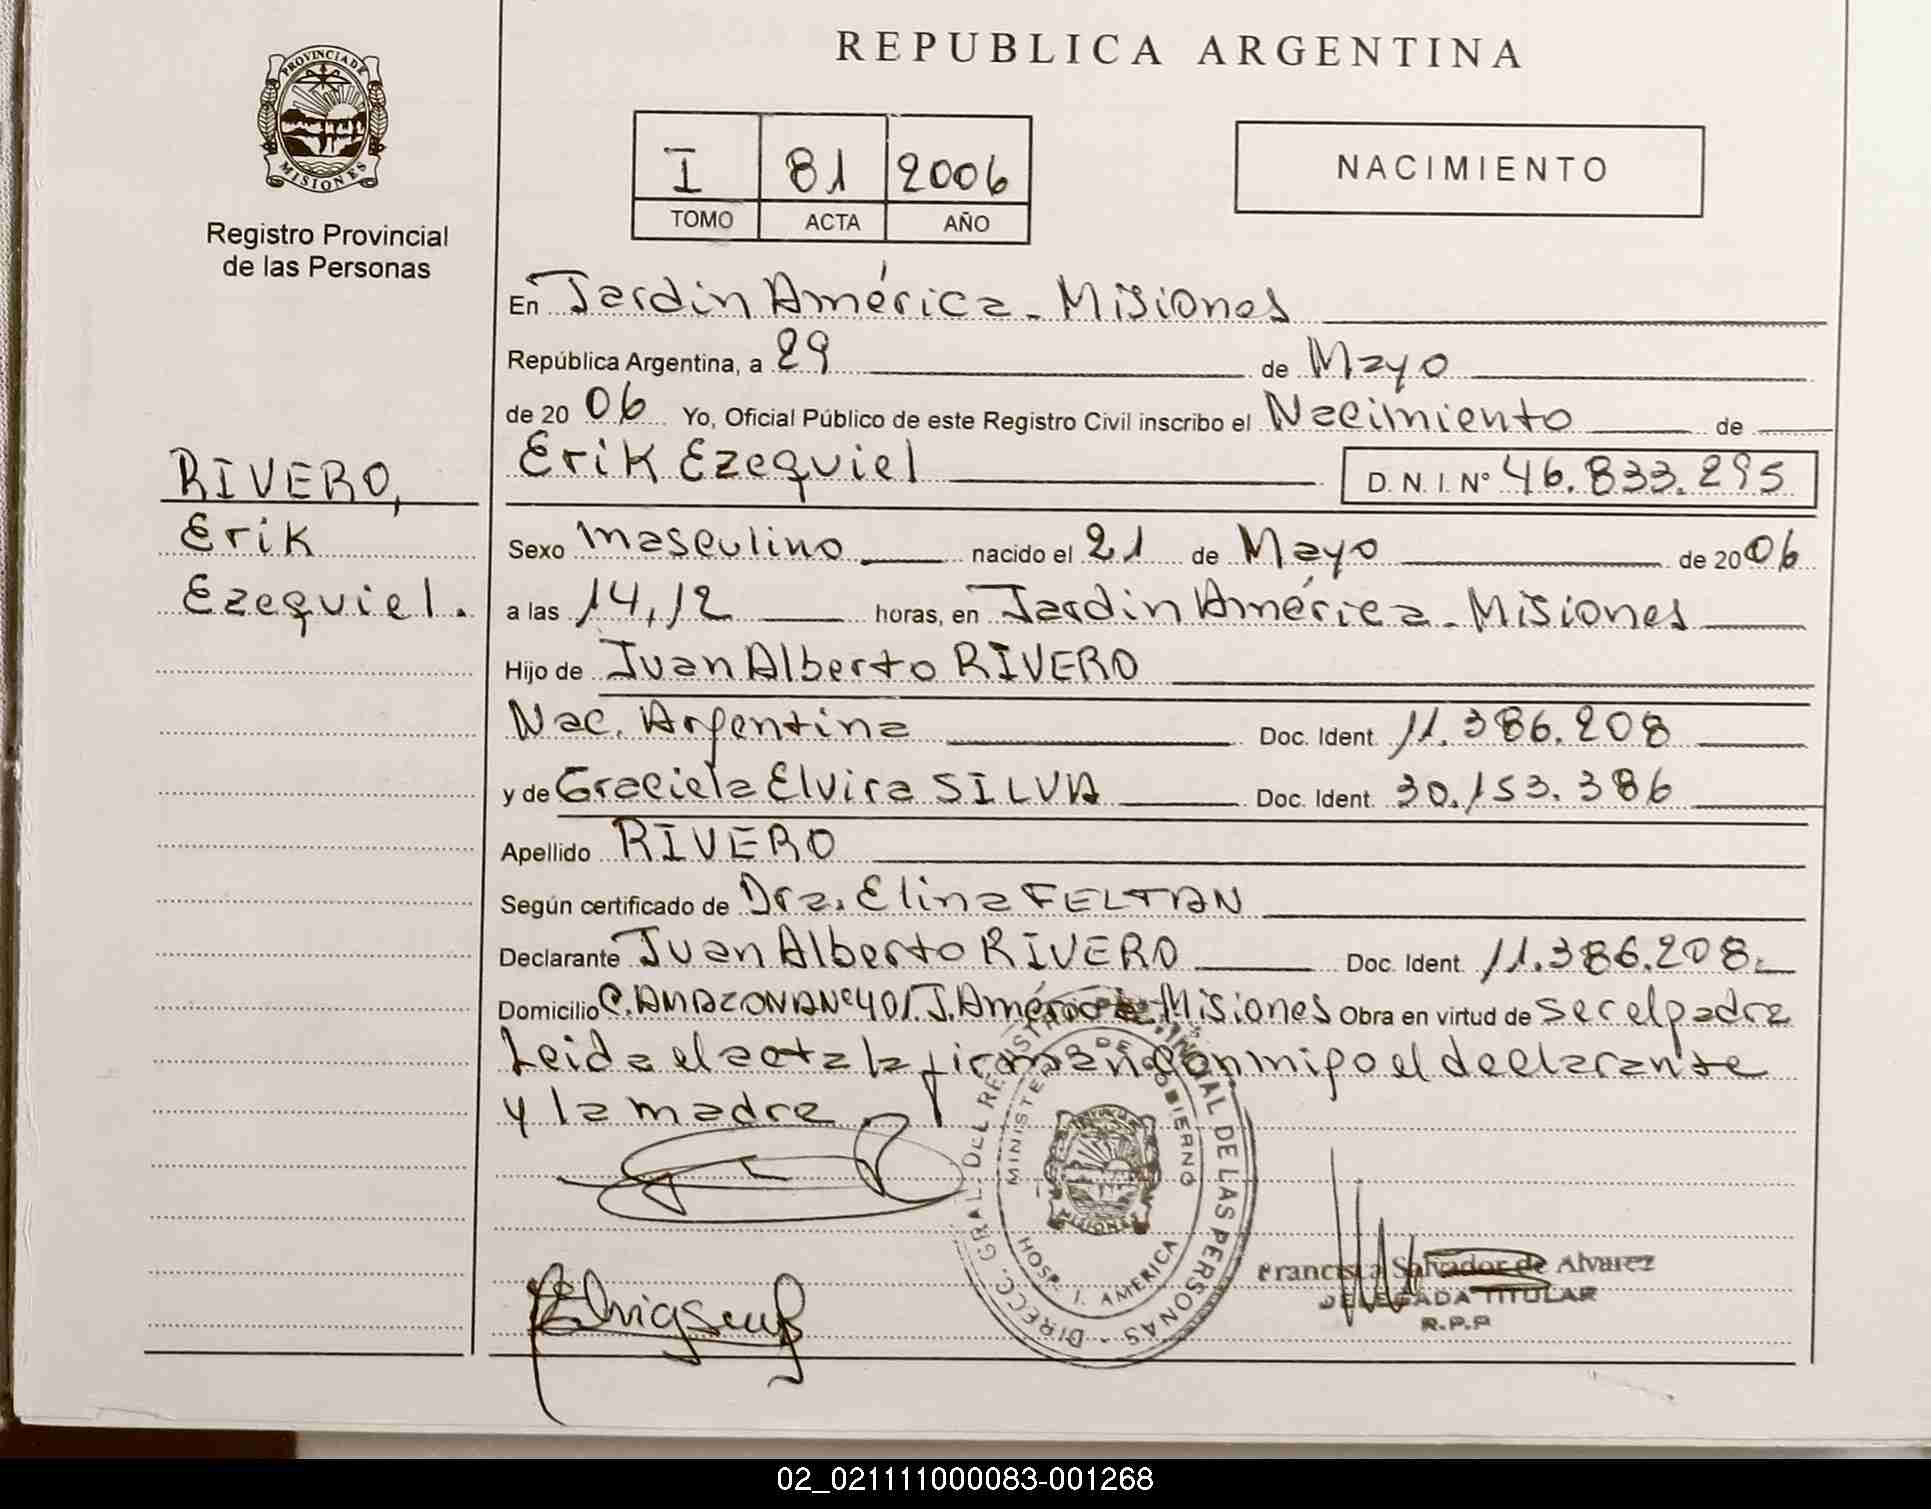 REPUBLICA ARGENTINA
PROVINCIA DE
MISIONES
Registro Provincial
de las Personas
I 81 2006
TOMO ACTA AÑO
NACIMIENTO
En Jardin América - Misiones
República Argentina, a 29 de Mayo
de 20 06 Yo, Oficial Público de este Registro Civil inscribo el Nacimiento de
Erik Ezequiel D. N. I. Nº 46.833.295
RIVERO,
Erik
Ezequiel.
Sexo masculino nacido el 21 de Mayo de 2006
a las 14,12 horas, en Jardin América - Misiones
Hijo de Juan Alberto RIVERO
Nac. Argentina Doc. Ident. 11.386.208
y de Graciela Elvira SILVA Doc. Ident. 30.153.386
Apellido RIVERO
Según certificado de Dra. Elina FELTAN
Declarante Juan Alberto RIVERO Doc. Ident. 11.386.208.
Domicilio C. AMAZONA Nº 401 J. América Misiones Obra en virtud de ser el padre
Leida el acta la firman conmigo el declarante
y la madre
DIRECC. GRAL. DEL REGISTRO PROVINCIAL DE LAS PERSONAS
MINISTERIO DE GOBIERNO
MISIONES
HOSP. J. AMERICA
Francisca Salvador de Alvarez
DELEGADA TITULAR
R.P.P
02_021111000083-001268